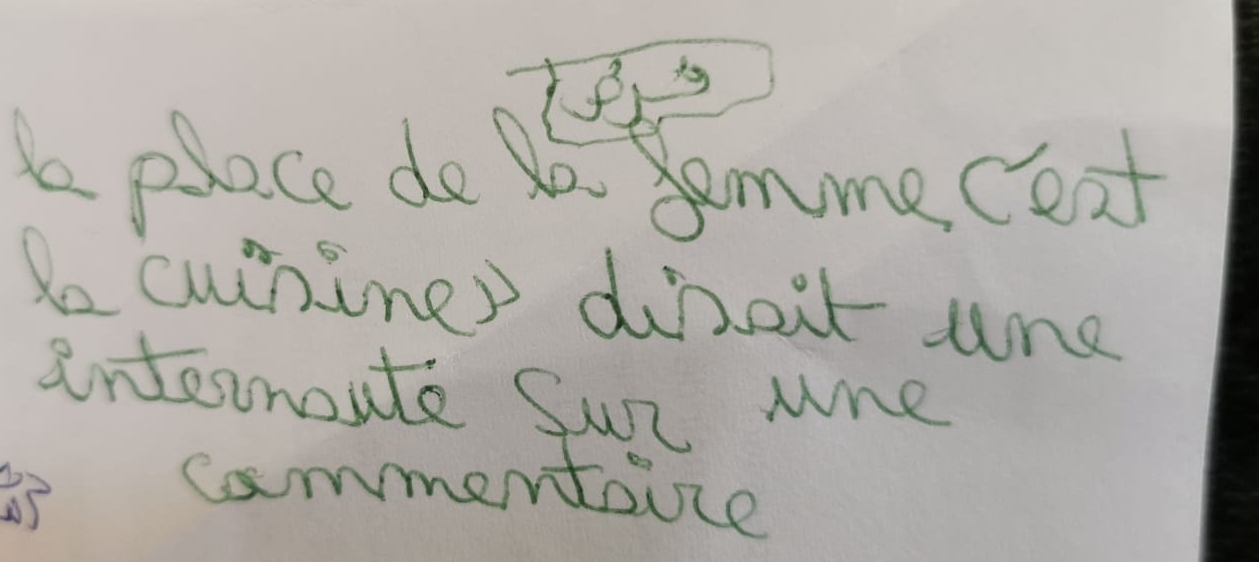 فرض
la place de la femme, c'est
la cuisine» disait une
internaute sur une
commentaire